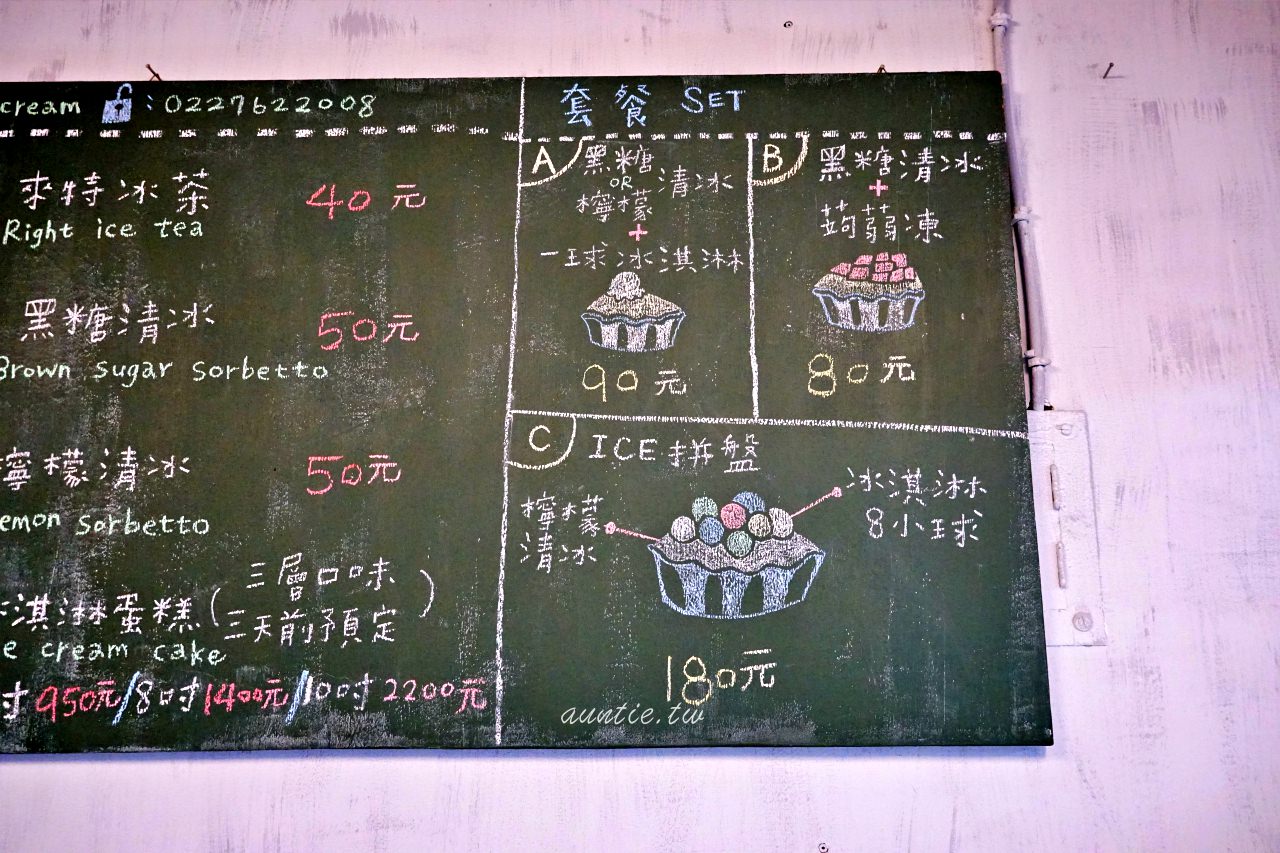 cream : 0227622008
來特冰茶 40元
Right ice tea
黑糖清冰 50元
Brown sugar sorbetto
檸檬清冰 50元
emon sorbetto
淇淋蛋糕(三層口味
三天前預定)
e cream cake
吋950元/8吋1400元/10吋2200元
套餐 SET
A 黑糖
OR
檸檬
清冰
+
一球冰淇淋
90元
B 黑糖清冰
+
蒟蒻凍
80元
C ICE拼盤
檸檬
清冰
冰淇淋
8小球
180元
auntie.tw